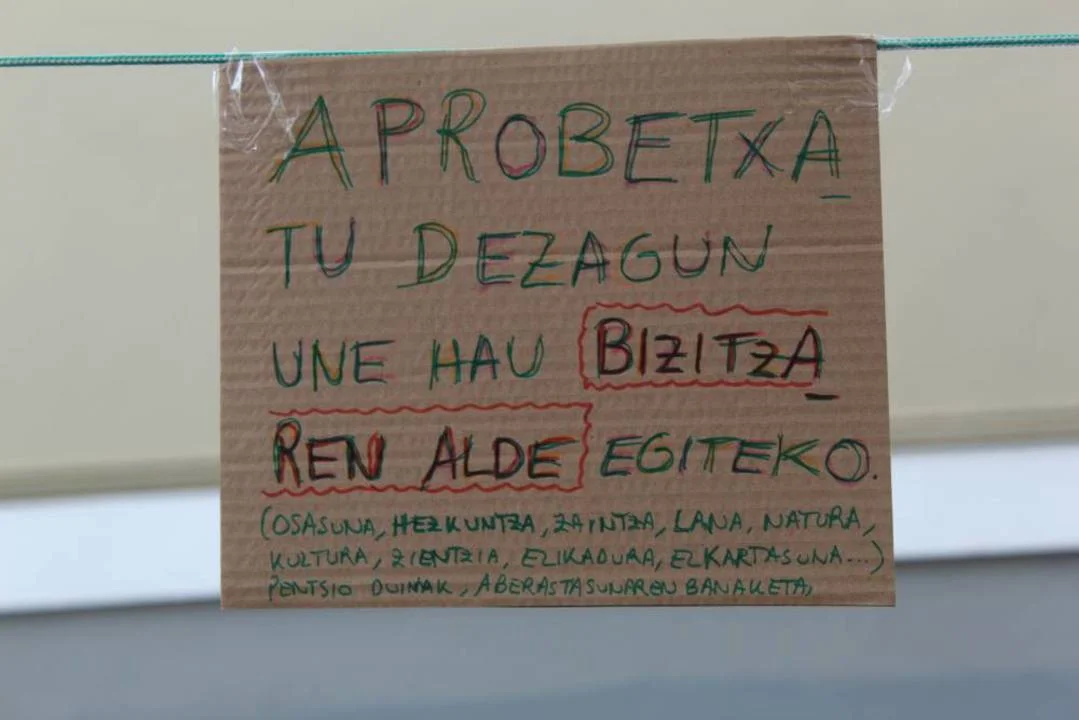 APROBETXA
TU DEZAGUN
UNE HAU BIZITZA
REN ALDE EGITEKO.
(OSASUNA, HEZKUNTZA, ZAINTZA, LANA, NATURA,
KULTURA, ZIENTZIA, ELIKADURA, ELKARTASUNA...)
PENTSIO DUINAK, ABERASTASUNAREN BANAKETA,